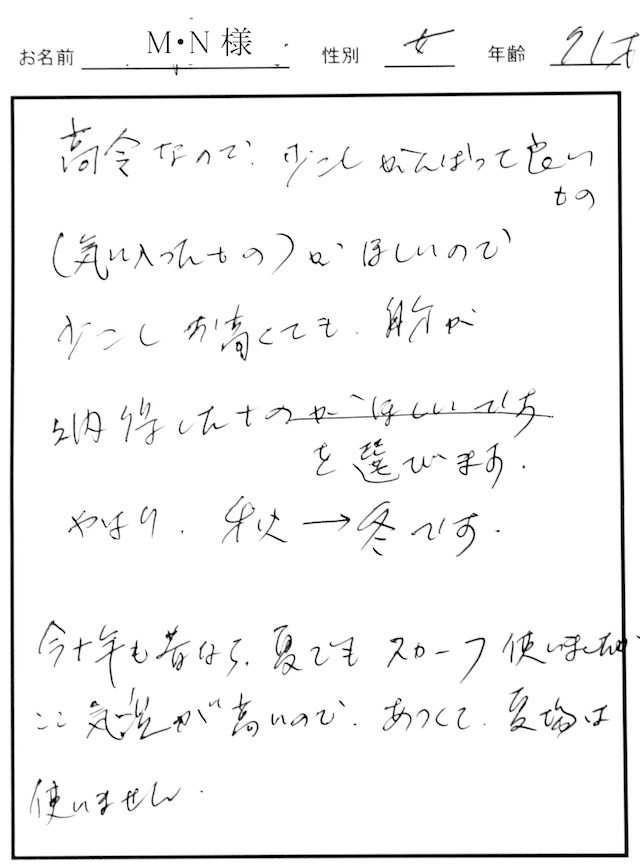 お名前 M・N様 性別 女 年齢 91才
高令なので、少こしがんばって良い
もの
(気に入ったもの)がほしいので
少こしお高くても、自分が
納得したものがほしいです
を選びます。
やはり、秋→冬です。
今十年も昔なら、夏でもスカーフ使いましたが
ここ気温が高いので、あつくて、夏場は
使いません。